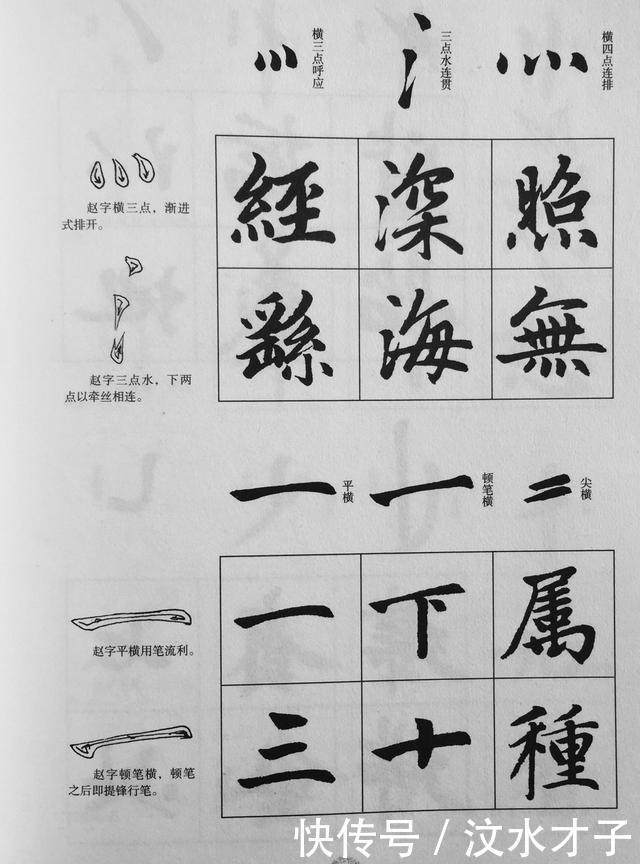 横三点呼应
三点水连贯
横四点连排
赵字横三点，渐进
式排开。
赵字三点水，下两
点以牵丝相连。
經 深 照
繇 海 無
平横
顿笔横
尖横
赵字平横用笔流利。
赵字顿笔横，顿笔
之后即提锋行笔。
一 下 属
三 十 種
快传号 / 汶水才子